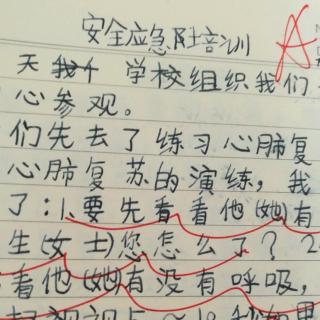 安全应急培训
天 学校组织我们
心参观。
们先去了练习心肺复
心肺复苏的演练，我
了：1、要先看看他(她)有
生(女士)您怎么了？2
看他(她)有没有呼吸，